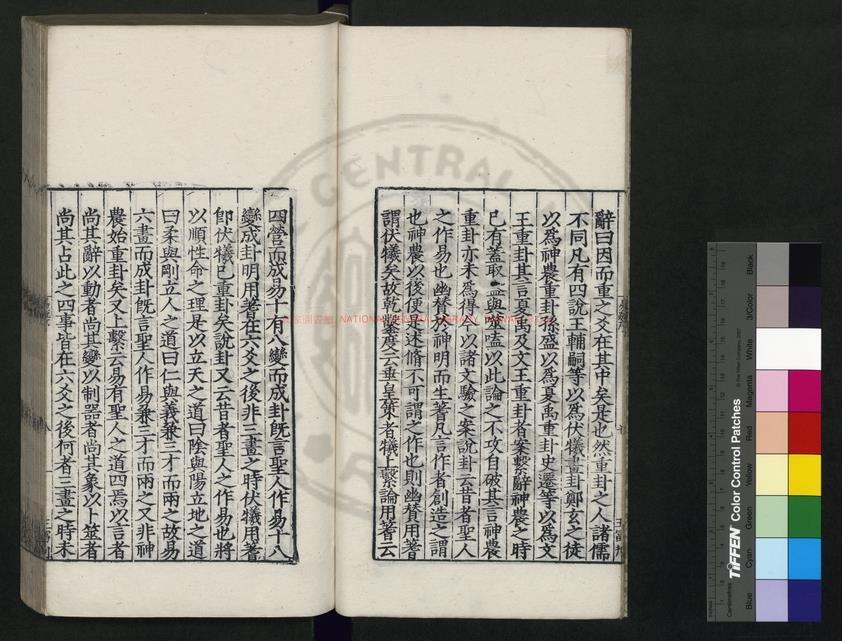 辭曰因而重之爻在其中矣是也然重卦之人諸儒
不同凡有四說王輔嗣等以爲伏犧畫卦鄭玄之徒
以爲神農重卦孫盛以爲夏禹重卦史遷等以爲文
王重卦其言夏禹及文王重卦者案繫辭神農之時
已有蓋取益與噬嗑以此論之不攻自破其言神農
重卦亦未爲得今以諸文驗之案說卦云昔者聖人
之作易也幽贊於神明而生蓍凡言作者創造之謂
也神農以後便是述脩不可謂之作也則幽贊用蓍
謂伏犧矣故乾鑿度云垂皇策者犧上繫論用蓍云
四營而成易十有八變而成卦旣言聖人作易十八
變成卦明用蓍在六爻之後非三畫之時伏犧用蓍
卽伏犧已重卦矣說卦又云昔者聖人之作易也將
以順性命之理是以立天之道曰陰與陽立地之道
曰柔與剛立人之道曰仁與義兼三才而兩之故易
六畫而成卦旣言聖人作易兼三才而兩之又非神
農始重卦矣又上繫云易有聖人之道四焉以言者
尚其辭以動者尚其變以制器者尚其象以卜筮者
尚其占此之四事皆在六爻之後何者三畫之時未
NATIONAL CENTRAL LIBRARY
CENTRAL
TIFFEN Color Control Patches
© The Tiffen Company, 2007
Blue
Cyan
Green
Yellow
Red
Magenta
White
3/Color
Black